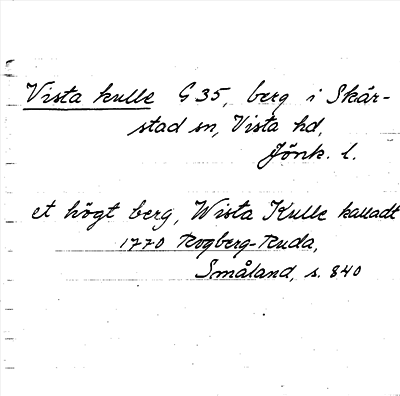 Vista kulle G 35, berg i Skär-
stad sn, Vista hd,
Jönk. l.
et högt berg, Wista Kulle kalladt
1770 Rogberg-Ruda,
Småland, s. 840